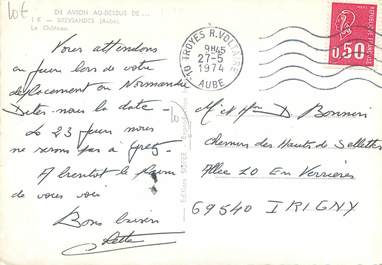 10€
EN AVION AU-DESSUS DE...
1 K - BREVIANDES (Aube)
Le Château.
10 TROYES R. VOLTAIRE
9H45
27-5
1974
AUBE
REPUBLIQUE FRANÇAISE
0,50
POSTES
Vous attendons
en Juin lors de votre
déplacement en Normandie
Dites-nous la date -
Le 23 Juin nous
ne serons pas à
A bientôt le plaisir
de vous voir
Bons baisers
M et Mme D Bonnin
Chemin des Hauts de Sellettes
Allée 20 En Verrières
69540 IRIGNY
Editions SOFER